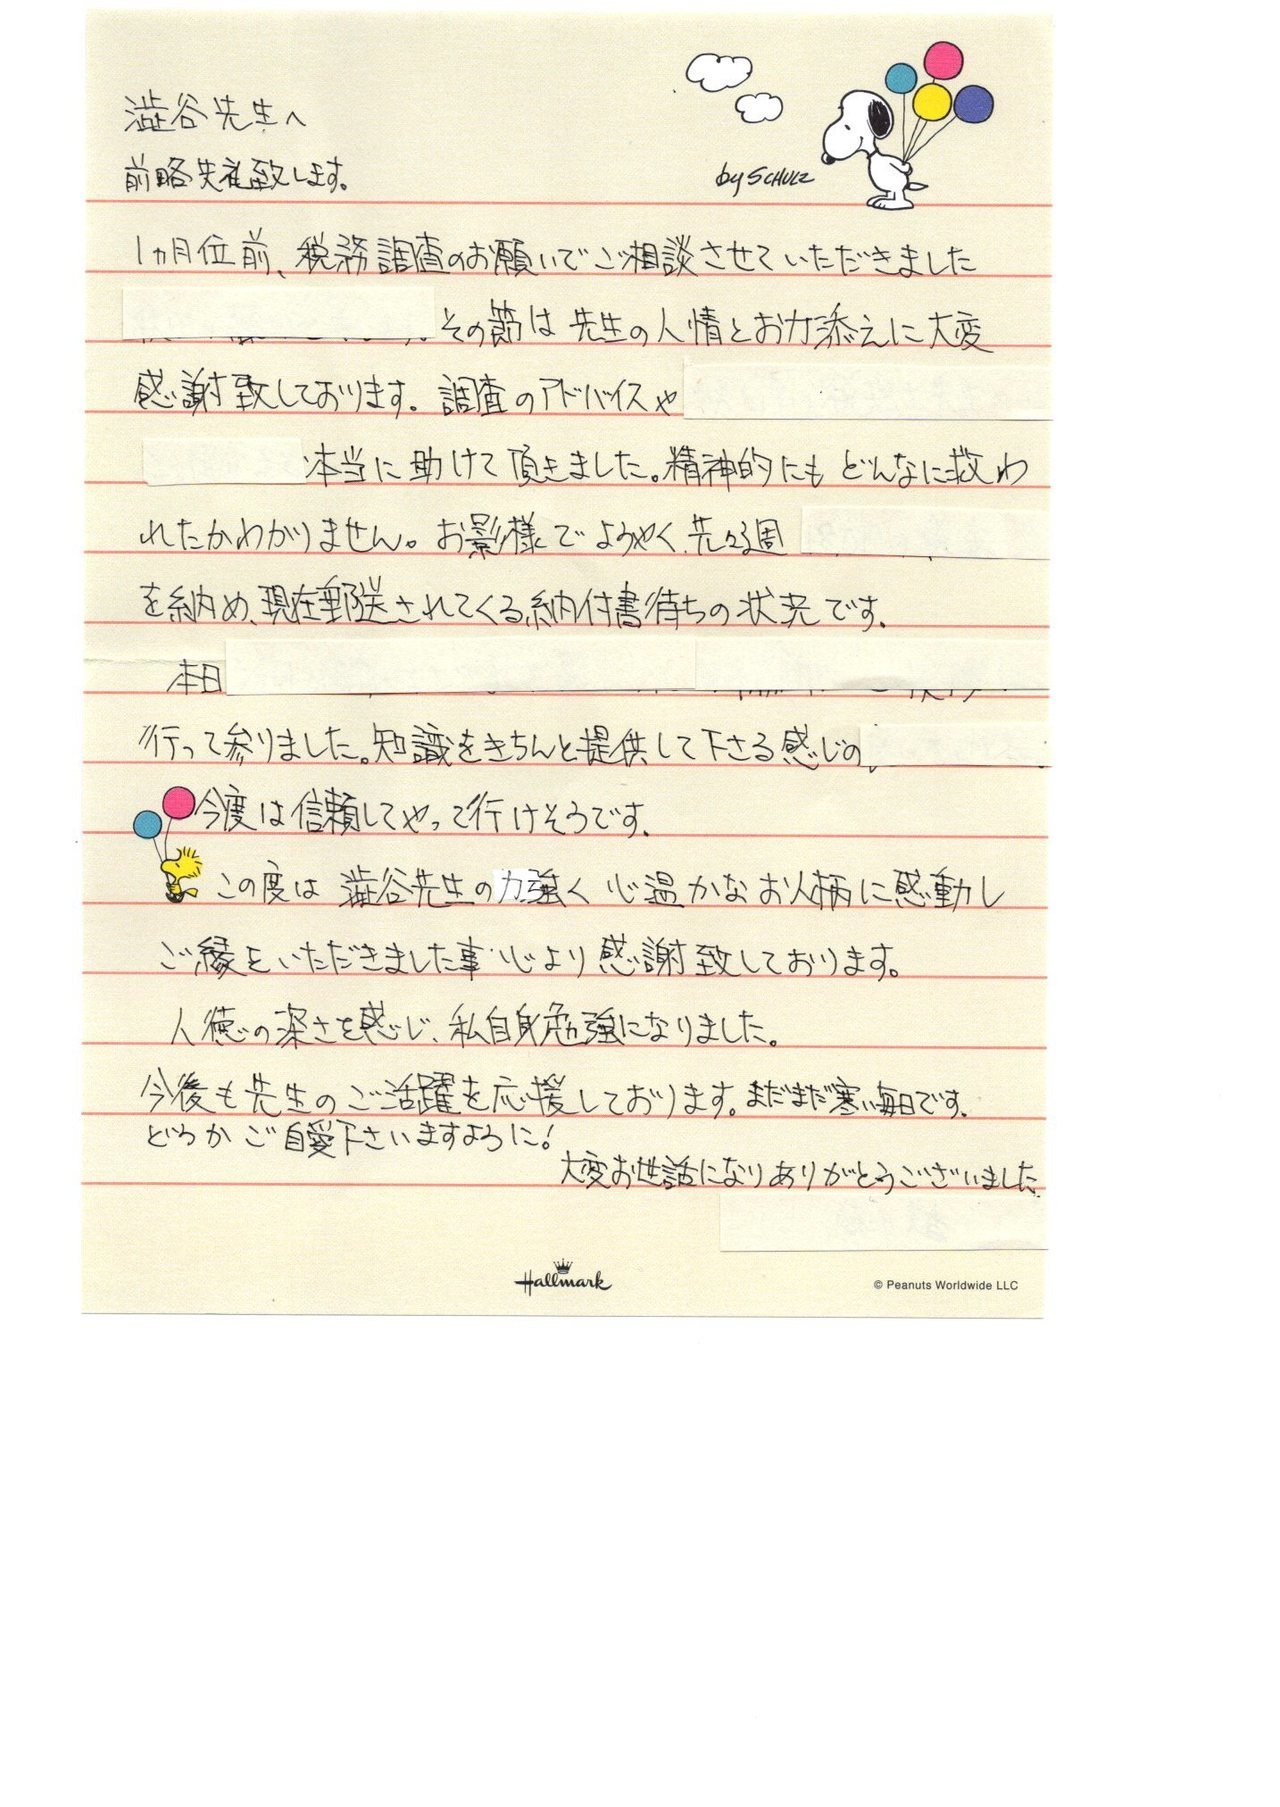 澁谷先生へ
前略失礼致します。
by SCHULZ
1ヵ月位前、税務調査のお願いでご相談させていただきました
その節は先生の人情とお力添えに大変
感謝致しております。調査のアドバイスや
本当に助けて頂きました。精神的にもどんなに救わ
れたかわかりません。お影様でようやく先々週
を納め、現在郵送されてくる納付書待ちの状況です。
本日
行って参りました。知識をきちんと提供して下さる感じの
今度は信頼してやって行けそうです。
この度は澁谷先生の力強く心温かなお人柄に感動し
ご縁をいただきました事心より感謝致しております。
人徳の深さを感じ、私自身勉強になりました。
今後も先生のご活躍を応援しております。まだまだ寒い毎日です。
どうかご自愛下さいますように!
大変お世話になりありがとうございました。
Hallmark
© Peanuts Worldwide LLC